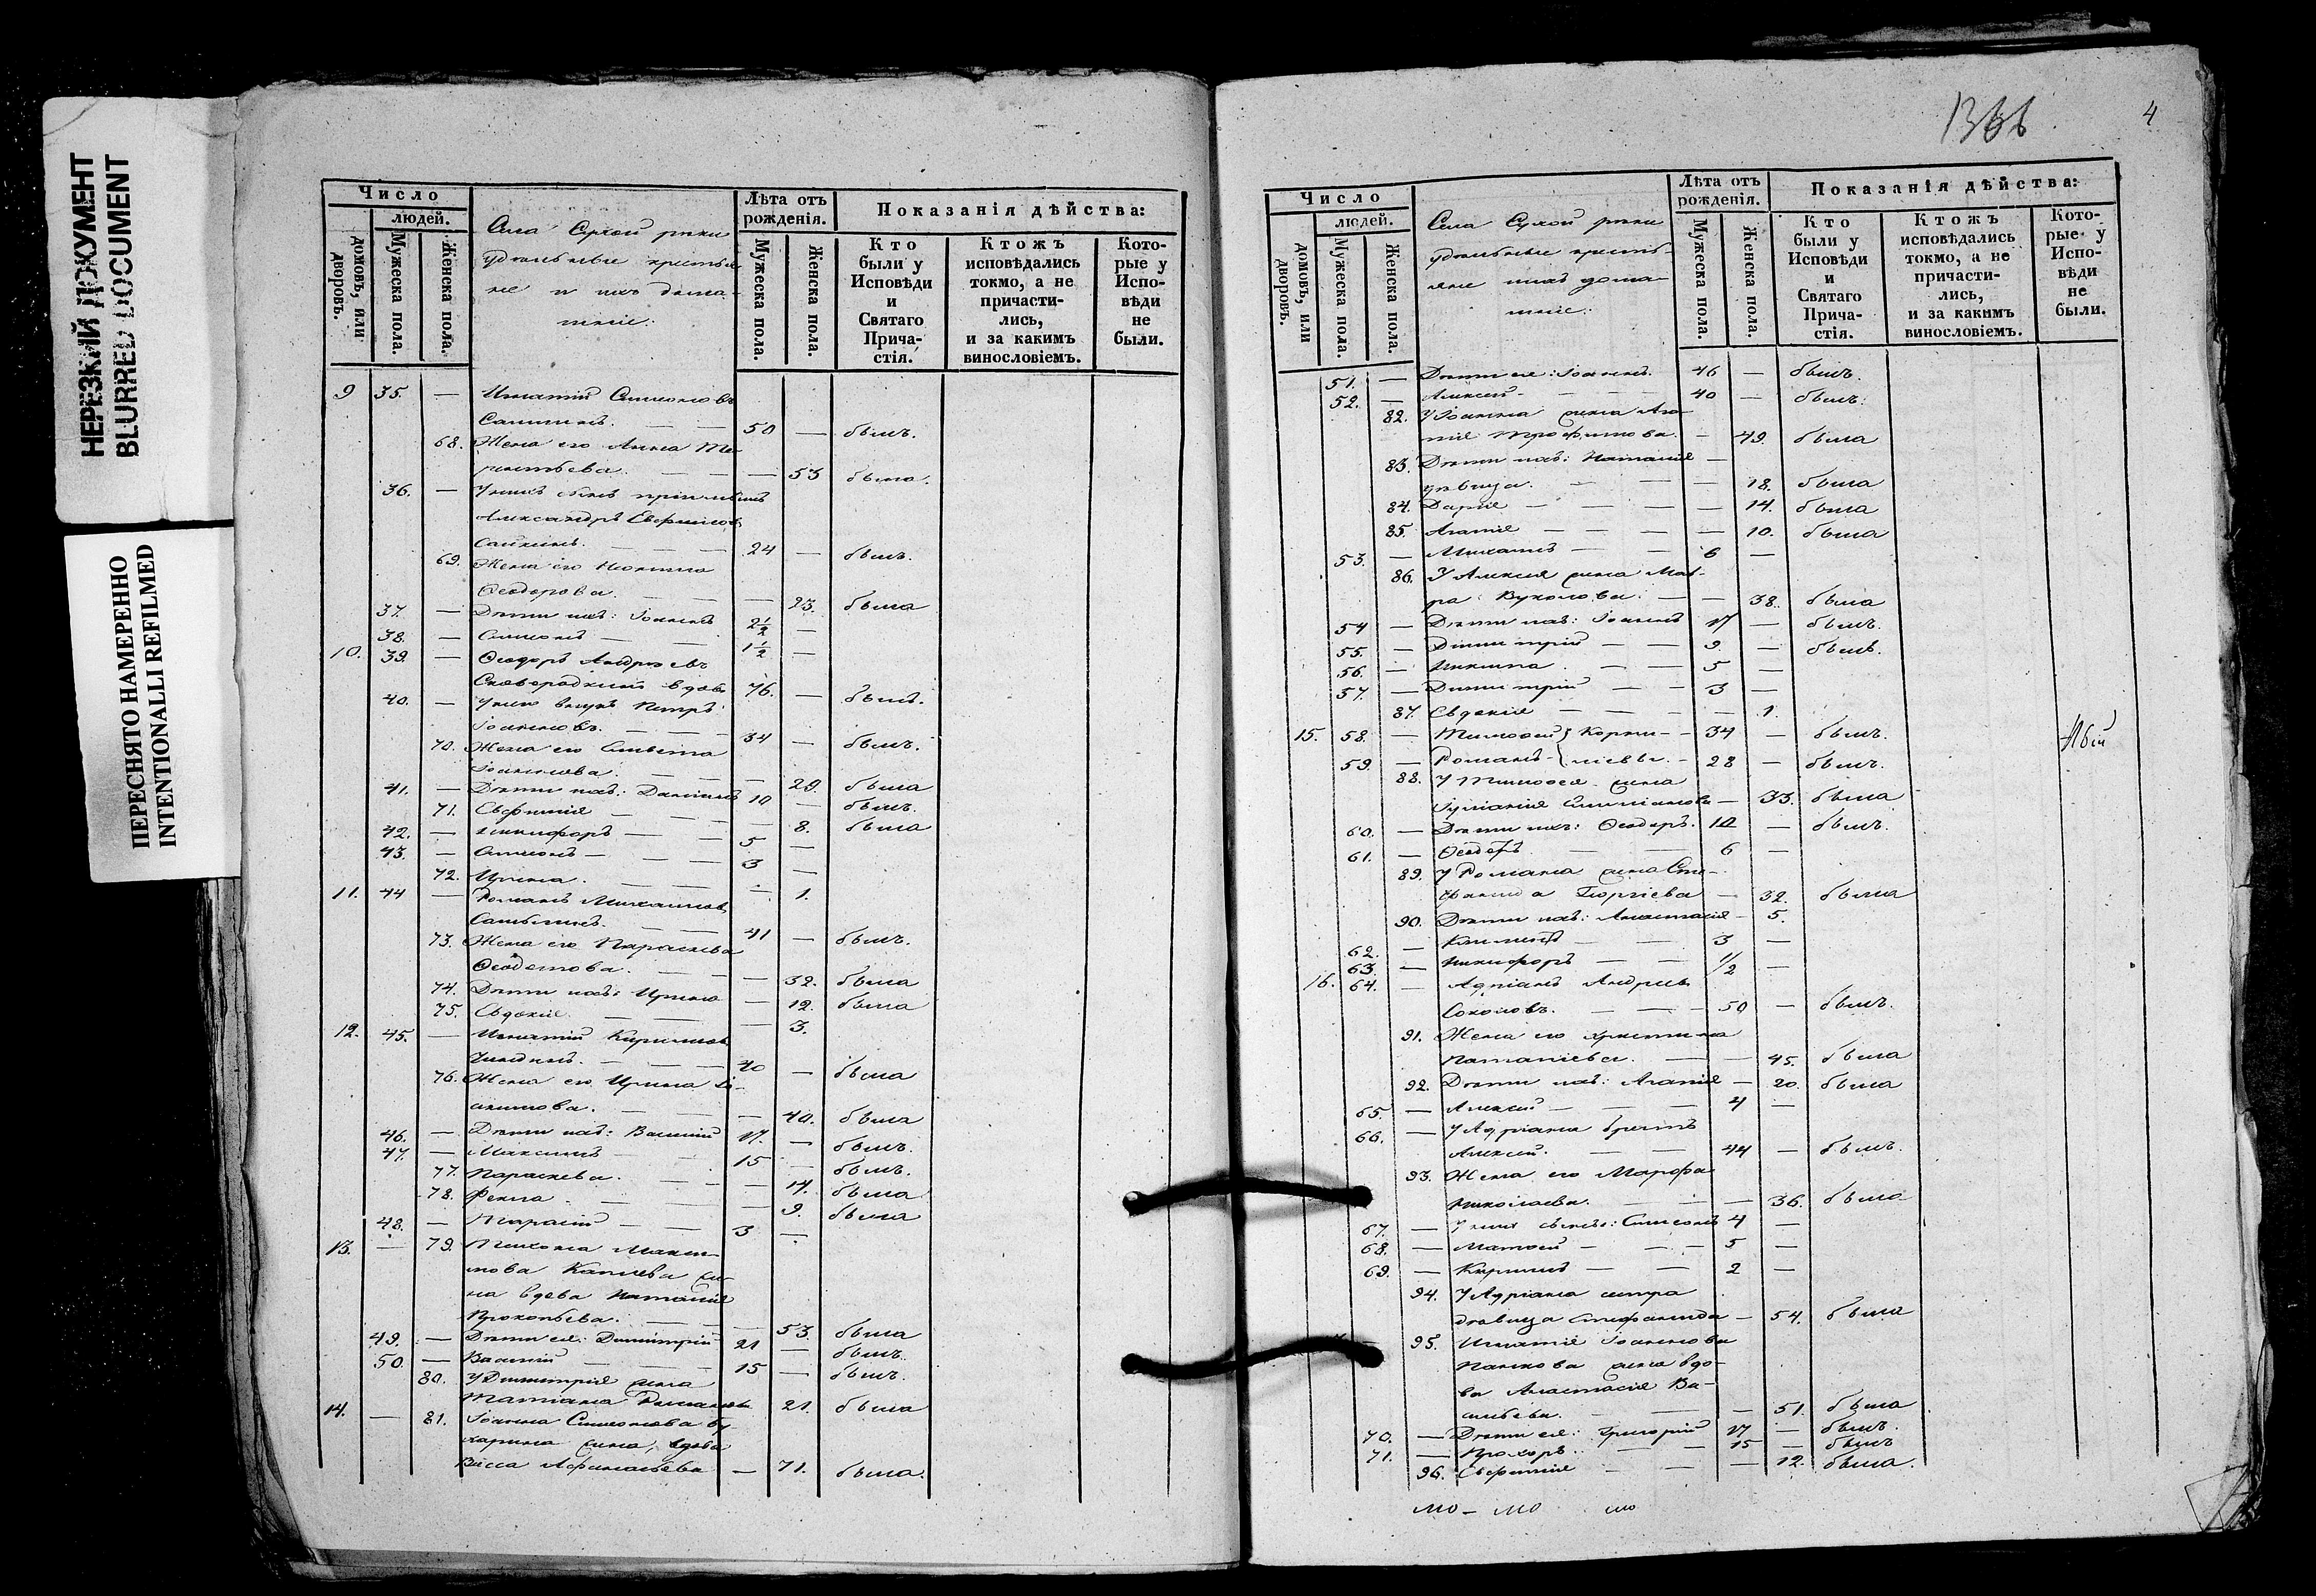 НЕРЕЗКИЙ ДОКУМЕНТ
BLURRED DOCUMENT
ПЕРЕСНЯТО НАМЕРЕННО
INTENTIONALLI REFILMED
Число
людей.
домовъ, или дворовъ.
Мужеска пола.
Женска пола.
Села Сухой рѣки
удѣльные крестья-
не и ихъ домаш-
ніе:
Лѣта отъ рожденія.
Мужеска пола.
Женска пола.
Показанія дѣйства:
Кто были у Исповѣди и Святаго Прича-стія.
Ктожъ исповѣдались токмо, а не причасти-лись, и за какимъ винословіемъ.
Кото-рые у Испо-вѣди не были.
9 35. — Игнатій Симеоновъ
— — 50 — былъ.
68. Жена его Анна Те-
рентьева. — — — 53 была.
36. — У нихъ
Александръ
— — — 24 — былъ.
69. Жена его
Ѳеодорова. — — — 23. была
37. — Дѣти ихъ: Іоаннъ 2½ —
38. — Симеонъ — — 1½ —
10. 39. — Ѳеодоръ Андреевъ
вдовъ 76. — былъ.
40. — У него внукъ Петръ
Іоанновъ. — — 34 — былъ.
70. Жена его
— — — 29. была
41. — Дѣти ихъ: Даніилъ 10 — былъ.
71. Евфимія — — — 8. была
42. — Никифоръ — — 5 —
43. — Симеонъ — — — 3 —
72. Ирина. — — — 1.
11. 44 — Романъ Михаиловъ
— — 41 — былъ.
73. Жена его Параскева
— — — 32. была
74. Дѣти ихъ: Ирина — 12. была
75. Евдокія. — — — 3.
12. 45. — Игнатій Кириловъ
— — 40 — была
76. Жена его Ирина
— — — 40. была
46. — Дѣти ихъ: Василій 17. — былъ.
47. — Максимъ — — 15 — былъ.
77. Параскева. — — — 14. была
78. Фекла. — — — 9. была
48. — Тарасій — — 3 —
13. — 79. Тихона Макси-
мова же-
на вдова Наталія
Прокопьева. — — — 53. была
49. — Дѣти ея: Димитрій 21 — былъ.
50. — Василій — — — 15 — былъ.
80. У Димитрія жена
Татіана 21. была
14. — 81. Іоанна Симеонова Бу-
харина жена, вдова
Васса Афанасьева — 71. была.
1366
4
Число
людей.
домовъ, или дворовъ.
Мужеска пола.
Женска пола.
Села Сухой рѣки
удѣльные кресть-
яне и ихъ домаш-
ніе:
Лѣта отъ рожденія.
Мужеска пола.
Женска пола.
Показанія дѣйства:
Кто были у Исповѣди и Святаго Прича-стія.
Ктожъ исповѣдались токмо, а не причасти-лись, и за какимъ винословіемъ.
Кото-рые у Испо-вѣди не были.
51. — Дѣти ея: Іоаннъ. 46 — былъ.
52. — Алексей — — — 40 — былъ.
82. У Іоанна жена Ага-
пія Трофимова. — 49. была
83. Дѣти ихъ: Наталія —
дѣвица. — — — 18. была
84. Дарія — — — — 14. была
85. Агапія — — — — 10. была
53. — Михаилъ — — 6 —
86. У Алексія жена Мав-
ра Вуколова. — — 38. была
54 — Дѣти ихъ: Іоаннъ 17 — былъ.
55. — Димитрій — — 9. — былъ.
56. — Никита. — — 5 —
57. — Димитрій — — 3 —
87. Евдокія — — — — 1.
15. 58. — Тимофей } Корни- — 34 — былъ.
59. — Романъ — { ліевы. — 28 — былъ.
88. У Тимофея жена
Іуліанія — 33. была
60. — Дѣти ихъ: Ѳеодоръ. 10 — былъ.
61. — Ѳеодоръ — — 6 —
89. У Романа жена Сте-
фанида Георгіева — 32. была
90. Дѣти ихъ: Анастасія — 5.
62. — Климентъ — — 3 —
63. — Никифоръ — — ½ —
16. 64. — Адріанъ Андреевъ
Соколовъ. — — — 50 — былъ.
91. Жена его Христина
— — 45. была
92. Дѣти ихъ: Агапія — 20. была
65. — Алексей — — — 4 —
66. — У Адріана братъ
Алексей. — — — 44 — былъ.
93. Жена его Марфа
Николаева. — — — 36. была
67. — У нихъ Симеонъ 4 —
68. — Матфей — — — 5 —
69. — Кирилъ — — 2 —
94. У Адріана сестра
дѣвица Стефанида — 54. была
95. Игнатія Іоаннова
Панкова жена вдо-
ва Анастасія Ва-
сильева. — — — 51. была
70. — Дѣти ея: Григорій 17 — былъ.
71. — Прохоръ. — — 15 — былъ
96. Евфимія — — — 12. была.